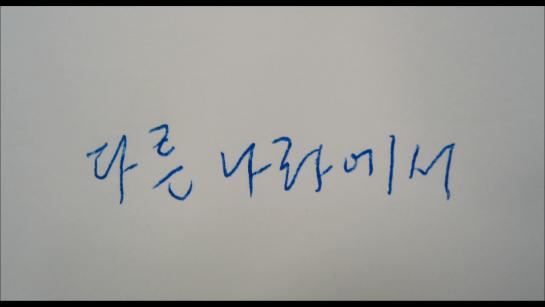 다른 나라에서